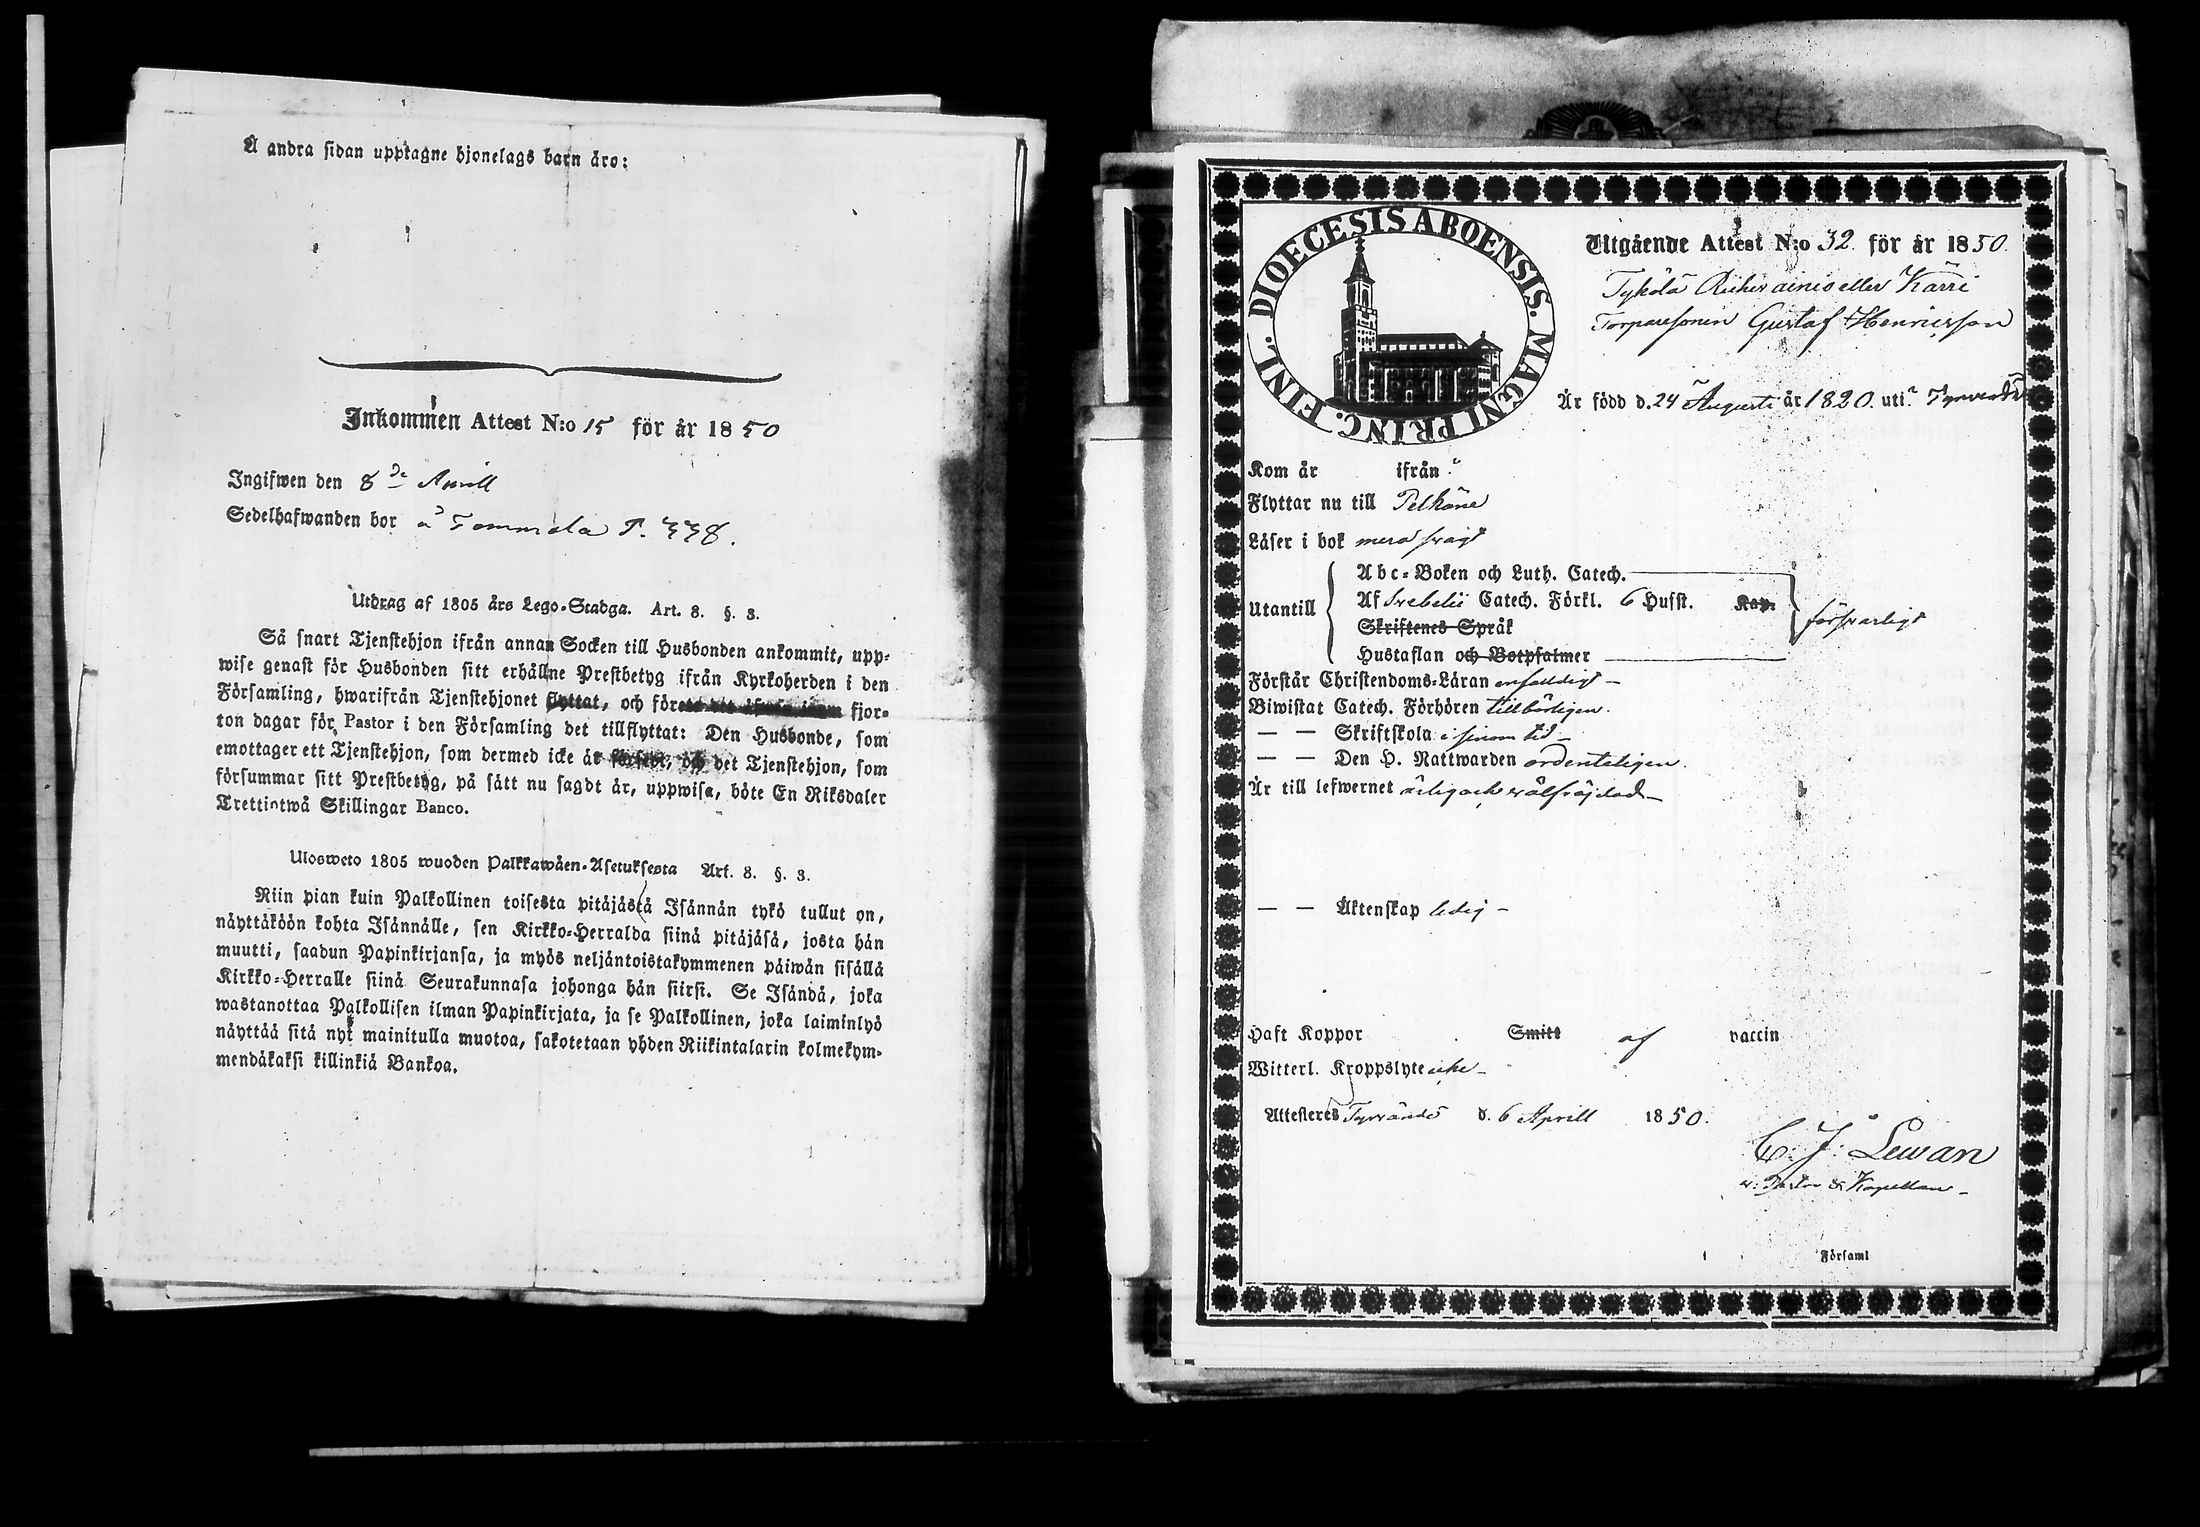 Å andra sidan upptagne hjonelags barn äro:
Inkommen Attest N:o 15 för år 1850
Ingifwen den 8de Aprill
Sedelhafwanden bor å Tommola P. 338.
Utdrag af 1805 års Lego-Stadga. Art. 8. §. 3.
Så snart Tjenstehjon ifrån annan Socken till Husbonden ankommit, upp-
wise genast för Husbonden sitt erhållne Prestbetyg ifrån Kyrkoherden i den
Församling, hwarifrån Tjenstehjonet flyttat, och före fjor-
ton dagar för Pastor i den Församling det tillflyttat: Den Husbonde, som
emottager ett Tjenstehjon, som dermed icke är försedt, och det Tjenstehjon, som
försummar sitt Prestbetyg, på sätt nu sagdt är, uppwisa, böte En Riksdaler
Trettiotwå Skillingar Banco.
Ulosweto 1805 wuoden Palkkawäen-Asetuksesta Art. 8. §. 3.
Niin pian kuin Palkollinen toisesta pitäjästä Isännän tykö tullut on,
näyttäköön kohta Isännälle, sen Kirkko-Herralda siinä pitäjäsä, josta hän
muutti, saadun Papinkirjansa, ja myös neljäntoistakymmenen päiwän sisällä
Kirkko-Herralle siinä Seurakunnasa johonga hän siirsi. Se Isändä, joka
wastanottaa Palkollisen ilman Papinkirjata, ja se Palkollinen, joka laiminlyö
näyttää sitä nyt mainitulla muotoa, sakotetaan yhden Riikintalarin kolmekym-
mendäkaksi killinkiä Bankoa.
DIOECESIS ABOENSIS. MAGNI PRINC. FINL.
Utgående Attest N:o 32 för år 1850.
Tykölä eller Kärri
Torparesonen Gustaf Henricsson
Är född d. 24 Augusti år 1820. uti Tyrvändö
Kom år ifrån
Flyttar nu till Pelkäne
Läser i bok med svagt
Abc-Boken och Luth. Catech.
Utantill Af Svebelii Catech. Förkl. 6 Husst. Kap. försvarligt
Skriftenes Språk
Hustaflan och Botpsalmer
Förstår Christendoms-Läran enfaldigt
Biwistat Catech. Förhören tillbörligen.
— — Skriftskola i sinom tid
— — Den H. Nattwarden ordenteligen.
Är till lefwernet ärlig och wälfräjdad
— — Äktenskap ledig
Haft Koppor Smitt af vaccin
Witterl. Kroppslyte icke
Attesteres Tyrvändö d. 6 Aprill 1850.
C. J. Lewan
v. Pastor & Kapellan
i Församl